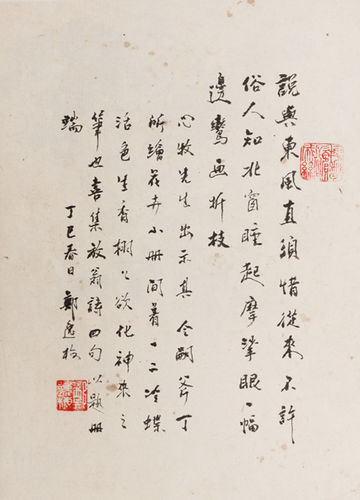 說與東風直須惜從來不許
俗人知北窗睡起摩挲眼一幅
邊鸞畫折枝
心牧先生出示其令嗣斧丁
所繪花卉小冊間著一二冷蝶
活色生香栩栩欲化神來之
筆也喜集放翁詩四句以題冊
端
丁巳春日鄭